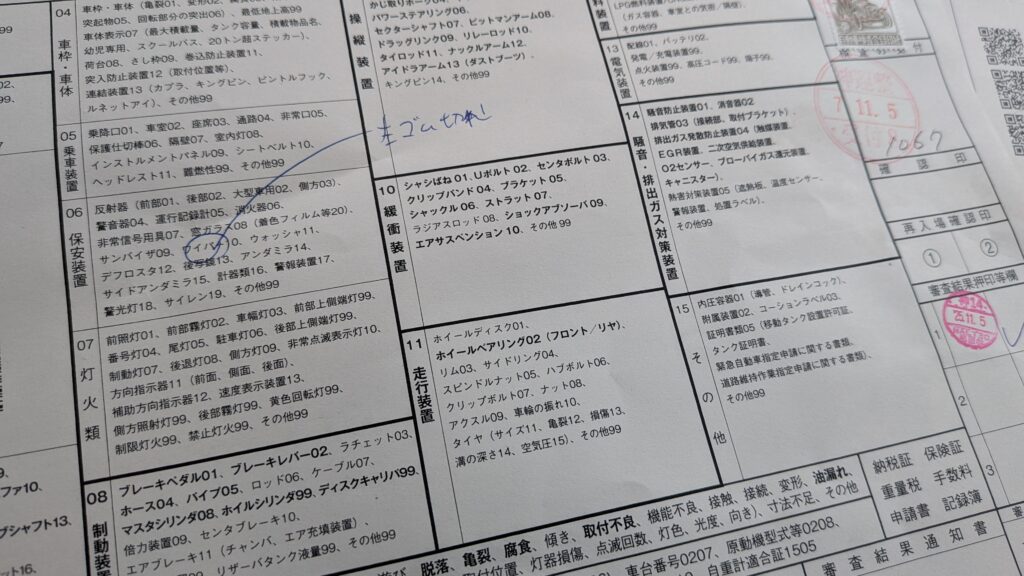 04
車枠・車体
車枠・車体(亀裂01、変形02、
突起物05、回転部分の突出06)、最低地上高99
車体表示07(最大積載量、タンク容量、積載物品名、
幼児専用、スクールバス、20トン超ステッカー)、
荷台08、さし枠09、巻込防止装置11、
突入防止装置12(取付位置等)、
連結装置13(カプラ、キングピン、ピントルフック、
ルネットアイ)、その他99
05
乗車装置
乗降口01、車室02、座席03、通路04、非常口05、
保護仕切棒06、隔壁07、室内灯08、
インストルメントパネル09、シートベルト10、
ヘッドレスト11、難燃性99、その他99
06
保安装置
反射器(前部01、後部02、大型車用02、側方03)、
警音器04、運行記録計05、消火器06、
非常信号用具07、窓ガラス08(着色フィルム等20)、
サンバイザ09、ワイパ10、ウォッシャ11、
デフロスタ12、後写鏡13、アンダミラ14、
サイドアンダミラ15、計器類16、警報装置17、
警光灯18、サイレン19、その他99
07
灯火類
前照灯01、前部霧灯02、車幅灯03、前部上側端灯99、
番号灯04、尾灯05、駐車灯06、後部上側端灯99、
制動灯07、後退灯08、側方灯09、非常点滅表示灯10、
方向指示器11(前面、側面、後面)、
補助方向指示器12、速度表示装置13、
側方照射灯99、後部霧灯99、黄色回転灯99、
制限灯火99、禁止灯火99、その他99
08
制動装置
ブレーキペダル01、ブレーキレバー02、ラチェット03、
ホース04、パイプ05、ロッド06、ケーブル07、
マスタシリンダ08、ホイルシリンダ99、ディスクキャリパ99、
倍力装置09、センタブレーキ10、
エアブレーキ11(チャンバ、エア充填装置)、
リザーバタンク液量99、その他99
操縦装置
かじ取りホーク
パワーステアリング06、
セクターシャフト07、ピットマンアーム08、
ドラッグリンク09、リレーロッド10、
タイロッド11、ナックルアーム12、
アイドラアーム13(ダストブーツ)、
キングピン14、その他99
左ゴム切れ
10
緩衝装置
シャシばね01、Uボルト02、センタボルト03、
クリップバンド04、ブラケット05、
シャックル06、ストラット07、
ラジアスロッド08、ショックアブソーバ09、
エアサスペンション10、その他99
11
走行装置
ホイールディスク01、
ホイールベアリング02(フロント/リヤ)、
リム03、サイドリング04、
スピンドルナット05、ハブボルト06、
クリップボルト07、ナット08、
アクスル09、車輪の振れ10、
タイヤ(サイズ11、亀裂12、損傷13、
溝の深さ14、空気圧15)、その他99
(ガス容器、車室との気密/隔壁)、
その他99
13
電気装置
配線01、バッテリ02、
発電/充電装置99、
点火装置99、高圧コード99、端子99、
その他99
14
騒音・排出ガス対策装置
騒音防止装置01、消音器02
排気管03(接続部、取付ブラケット)、
排出ガス発散防止装置04(触媒装置、
EGR装置、二次空気供給装置、
O2センサ、ブローバイガス還元装置、
キャニスター)、
熱害対策装置05(遮熱板、温度センサー、
警報装置、処置ラベル)、
その他99
15
その他
内圧容器01(導管、ドレインコック)、
附属装置02、コーションラベル03、
証明書類05(移動タンク設置許可証、
タンク証明書、
緊急自動車指定申請に関する書類、
道路維持作業指定申請に関する書類)、
その他99
7.11.5
1067
確認印
再入場確認印
①
②
審査結果押印等欄
1
25.11.5
2
3
遊び、脱落、亀裂、腐食、傾き、取付不良、機能不良、接触、接続、変形、油漏れ、
取付位置、灯器損傷、点滅回数、灯色、光度、向き)、寸法不足、その他
車台番号0207、原動機型式等0208、
自重計適合証1505
納税証 保険証
重量税 手数料
申請書 記録簿
審査結果通知書